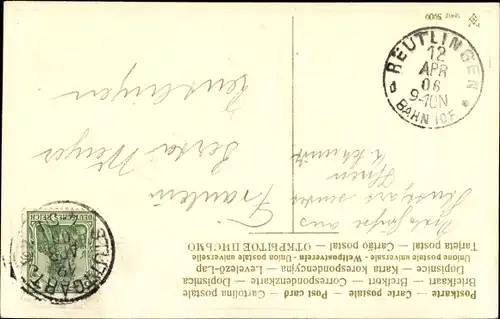 Postkarte — Carte postale — Post card — Cartolina postale
Briefkaart — Brefkort — Correspondenzkarte — Dopisnica
Dopisnice — Karta Korespondencyjna — Levelező-Lap
Union postale universelle — Weltpostverein — Unione postale universale
Tarjeta postal — Cartão postal — ОТКРЫТОЕ ПИСЬМО
aus
Stuttgart sendet
Ihnen
Fräulein
Berta
Reutlingen
DEUTSCHES REICH
STUTTGART
APR
REUTLINGEN
12
APR
06
9-10N
BAHNHOF